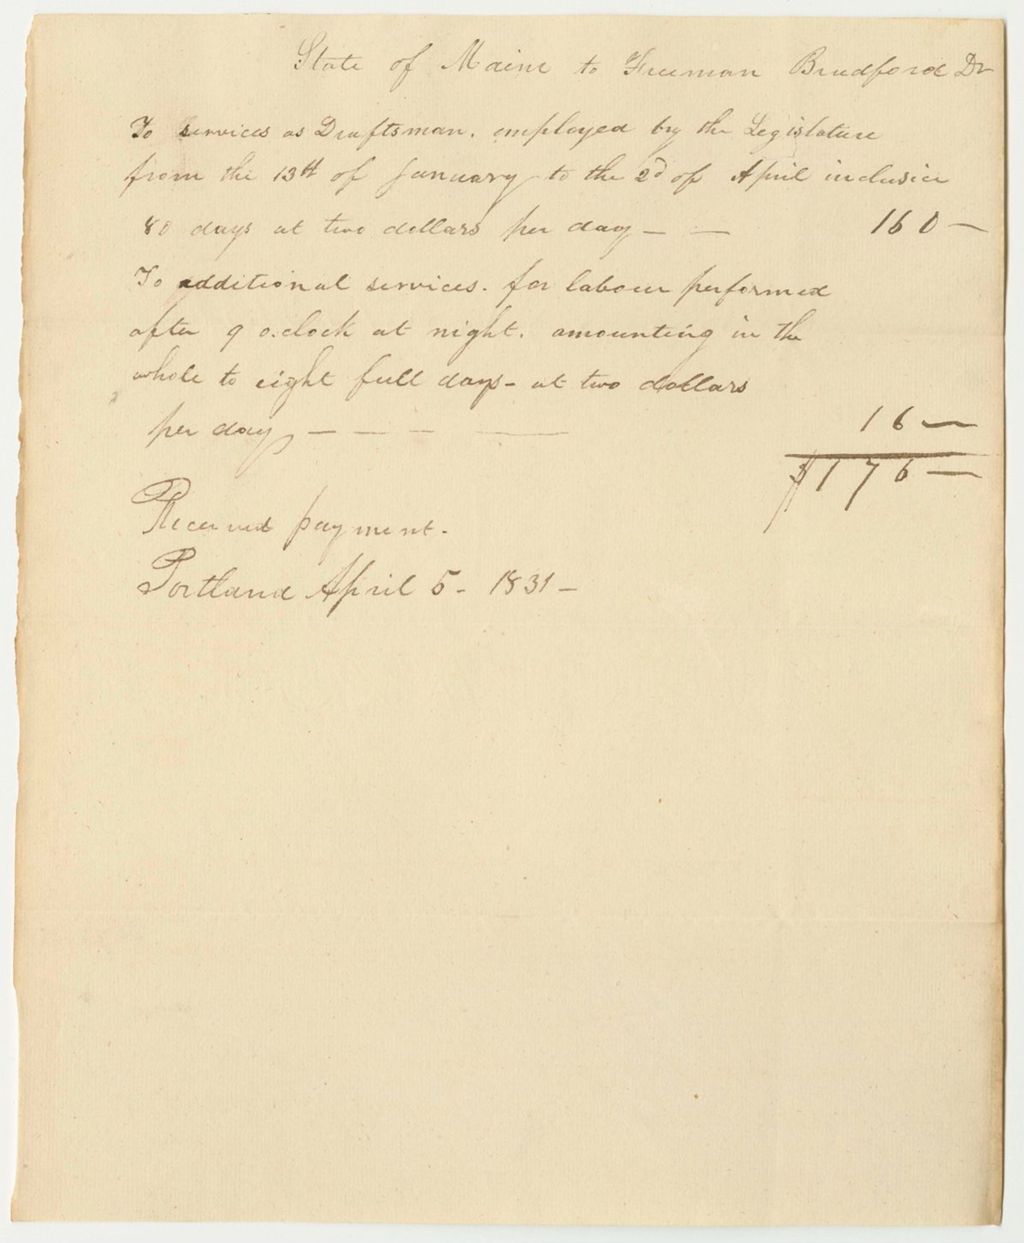 State of Maine to Freeman Bradford Dr
To services as Draftsman. employed by the Legislature
from the 13th of January to the 2d of April inclusive
80 days at two dollars per day — — 160 —
To additional services. for labour performed
after 9 o.clock at night. amounting in the
whole to eight full days - at two dollars
per day — — — — 16 —
$176 —
Received payment.
Portland April 5 - 1831 -